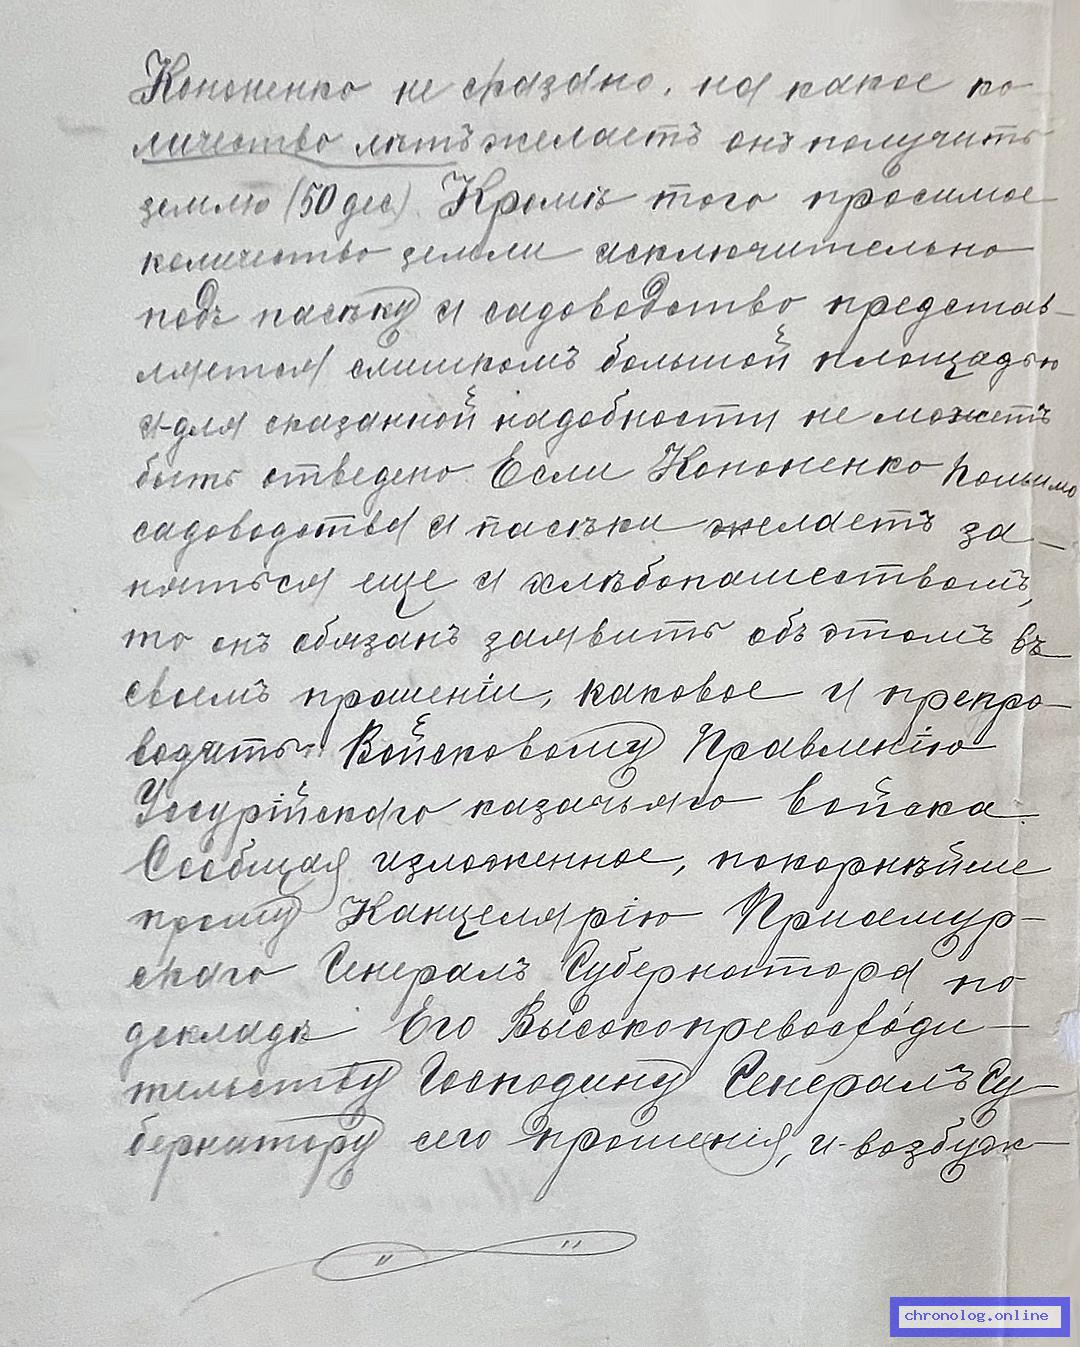 Кононенко не сказано, на какое ко-
личество лѣтъ желаетъ онъ получить
землю (50 дес). Кромѣ того просимое
количество земли исключительно
подъ пасѣку и садоводство представ-
ляется слишкомъ большой площадью
и для сказанной надобности не можетъ
быть отведено. Если Кононенко помимо
садоводства и пасѣки желаетъ за-
няться еще и хлѣбопашествомъ,
то онъ обязанъ заявить объ этомъ въ
своемъ прошеніи, каковое и препро-
водить Войсковому Правленію
Уссурійскаго казачьяго войска.
Сообщая изложенное, покорнѣйше
прошу Канцелярію Приамур-
скаго Генералъ Губернатора по
докладѣ Его Высокопревосходи-
тельству Господину Генералъ Гу-
бернатору сего прошенія, и возбуж-
chronolog.online